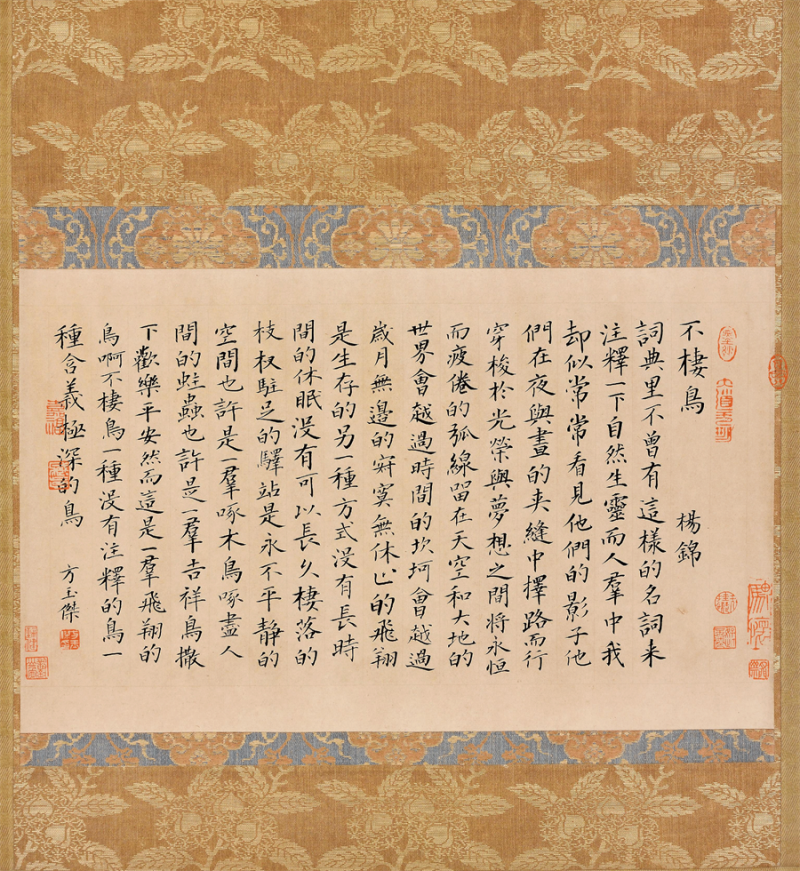 不棲鳥　楊錦
詞典里不曾有這樣的名詞来
注釋一下自然生靈而人羣中我
却似常常看見他們的影子他
們在夜與晝的夹縫中擇路而行
穿梭於光榮與夢想之間將永恒
而疲倦的弧線留在天空和大地的
世界會越過時間的坎坷會越過
歲月無邊的寂寞無休止的飛翔
是生存的另一種方式没有長時
間的休眠没有可以長久棲落的
枝杈駐足的驛站是永不平靜的
空間也許是一羣啄木鳥啄盡人
間的蛀蟲也許是一羣吉祥鳥撒
下歡樂平安然而這是一羣飛翔的
鳥啊不棲鳥一種没有注釋的鳥一
種含義極深的鳥
方玉傑